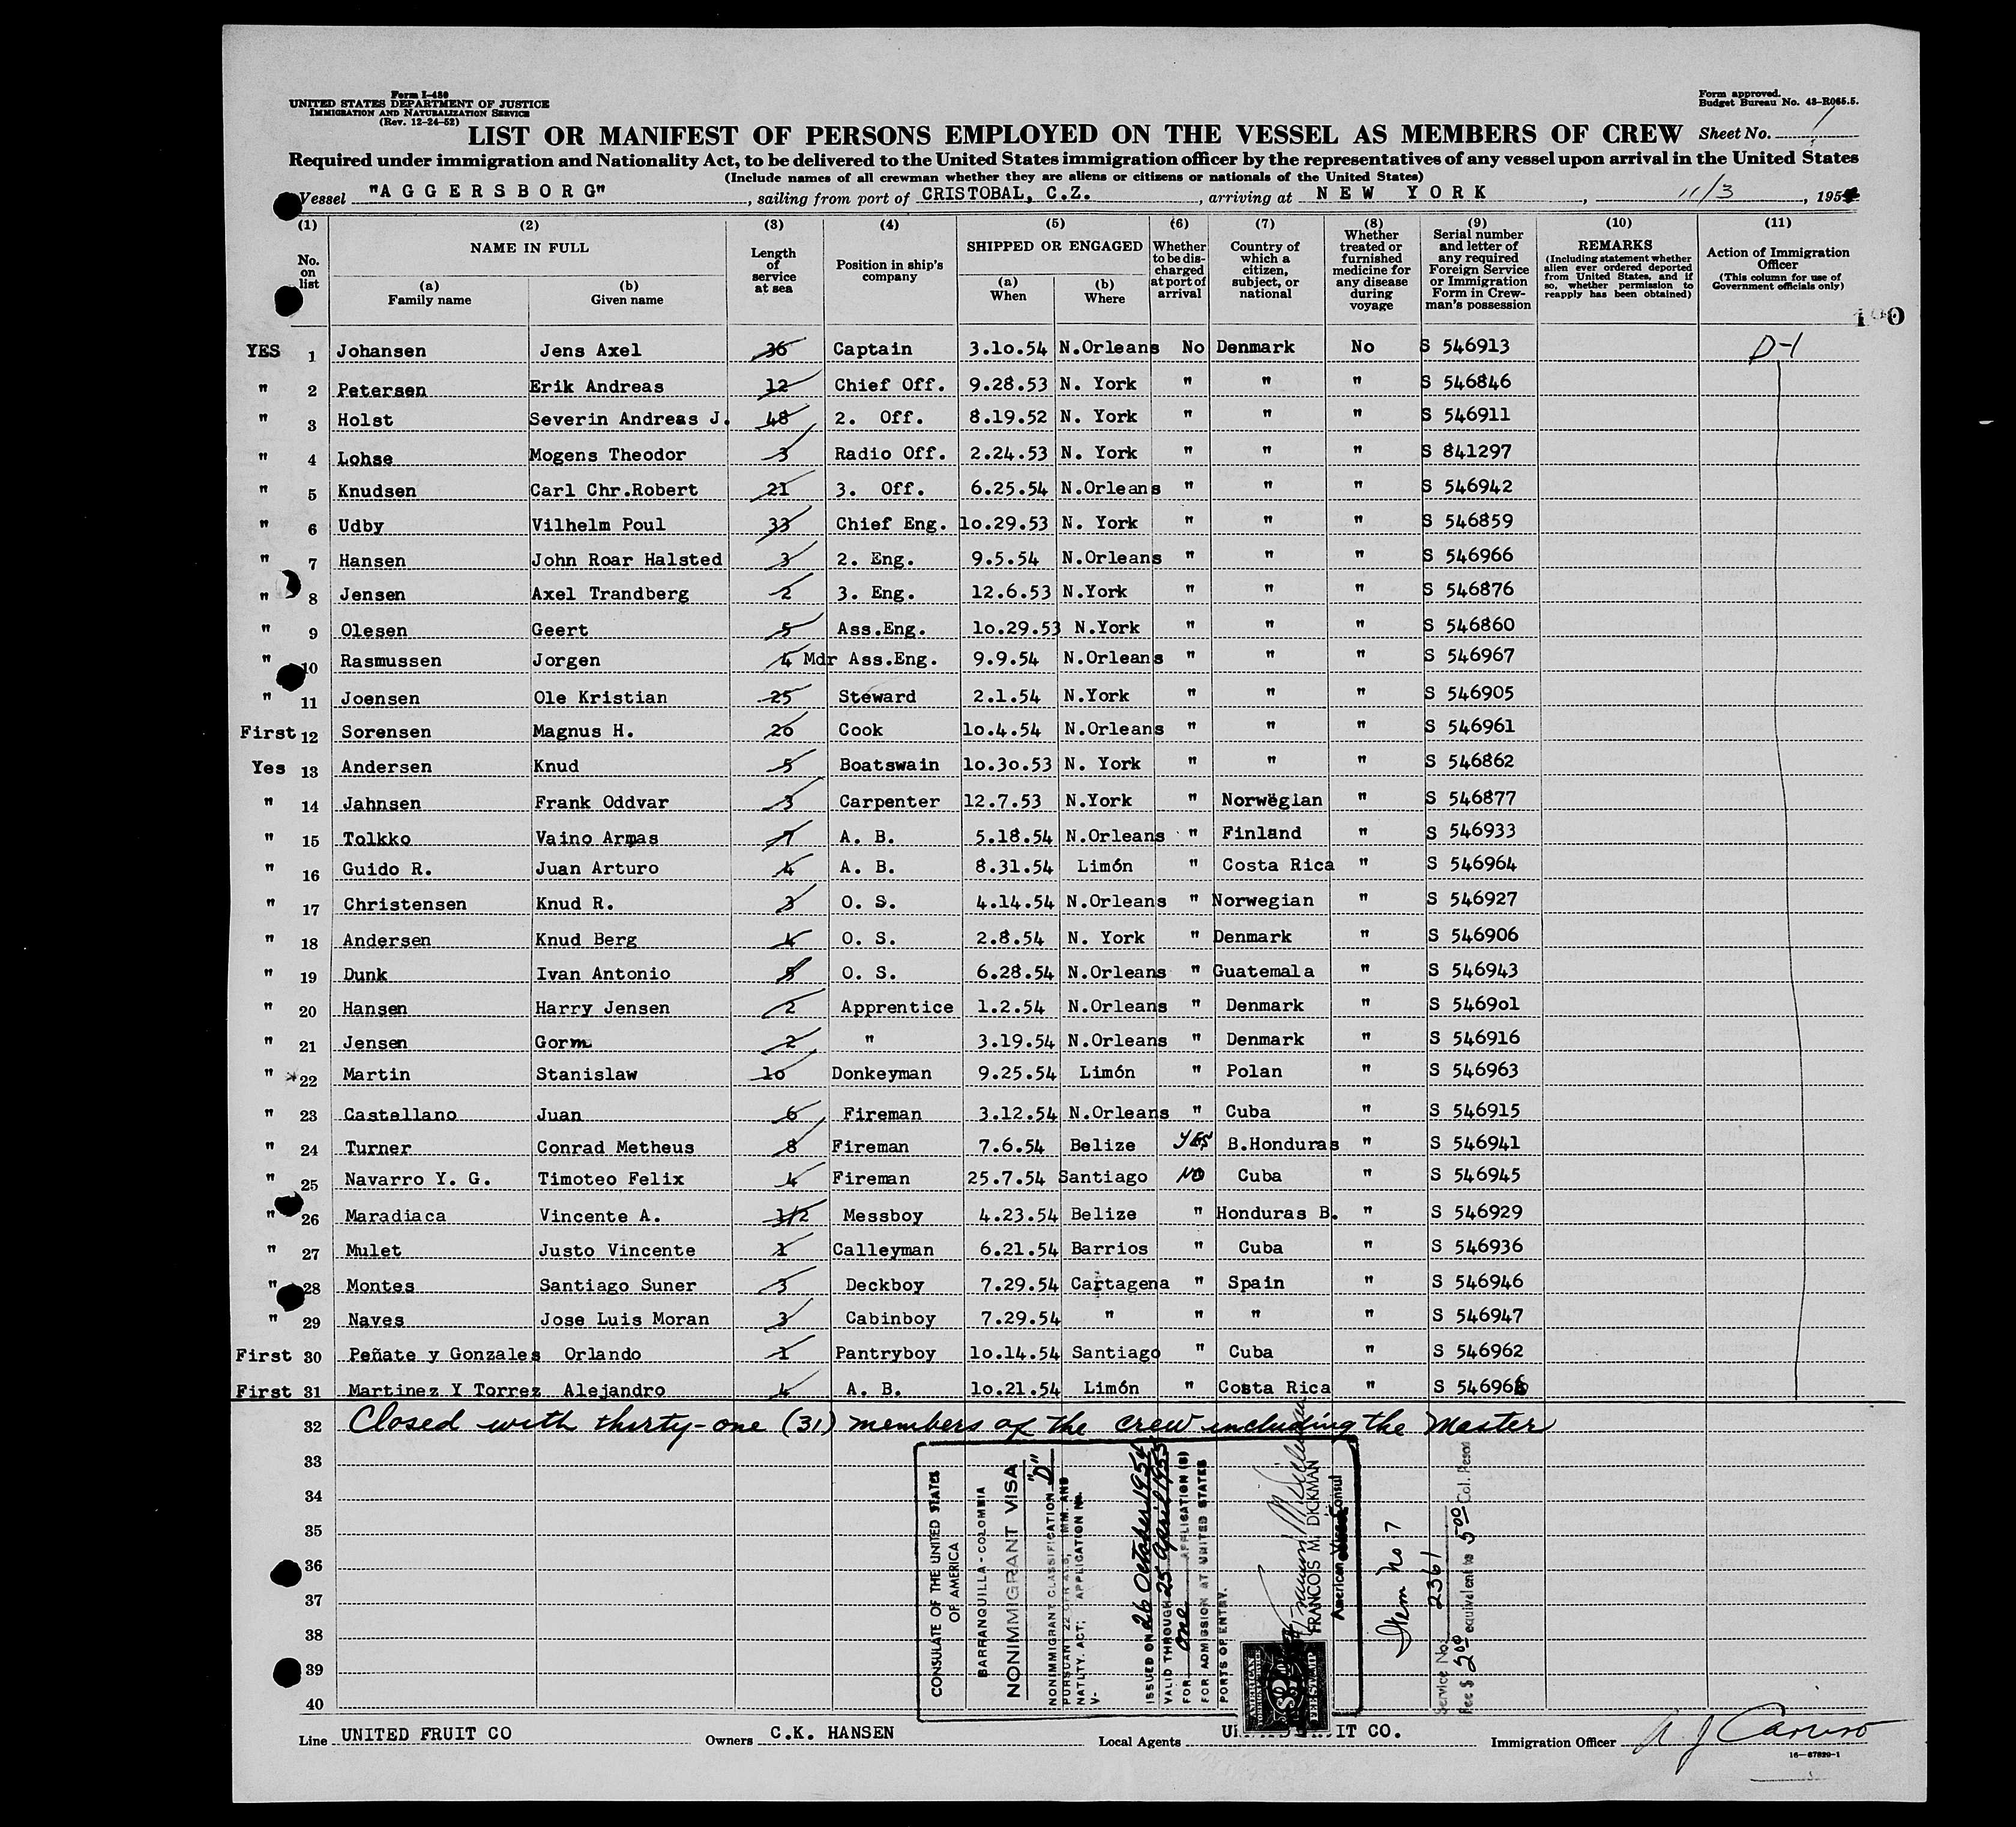 Form I-480
UNITED STATES DEPARTMENT OF JUSTICE
IMMIGRATION AND NATURALIZATION SERVICE
(Rev. 12-24-52)
Form approved.
Budget Bureau No. 43-R065.5.
LIST OR MANIFEST OF PERSONS EMPLOYED ON THE VESSEL AS MEMBERS OF CREW Sheet No. 1
Required under immigration and Nationality Act, to be delivered to the United States immigration officer by the representatives of any vessel upon arrival in the United States
(Include names of all crewman whether they are aliens or citizens or nationals of the United States)
Vessel "AGGERSBORG", sailing from port of CRISTOBAL, C.Z., arriving at NEW YORK, 11/3, 195
(1) (2) (3) (4) (5) (6) (7) (8) (9) (10) (11)
No. on list
NAME IN FULL
(a) Family name
(b) Given name
Length of service at sea
Position in ship's company
SHIPPED OR ENGAGED
(a) When
(b) Where
Whether to be discharged at port of arrival
Country of which a citizen, subject, or national
Whether treated or furnished medicine for any disease during voyage
Serial number and letter of any required Foreign Service or Immigration Form in Crewman's possession
REMARKS
(Including statement whether alien ever ordered deported from United States, and if so, whether permission to reapply has been obtained)
Action of Immigration Officer
(This column for use of Government officials only)
YES 1 Johansen Jens Axel 36 Captain 3.10.54 N.Orleans No Denmark No S 546913 D-1
" 2 Petersen Erik Andreas 12 Chief Off. 9.28.53 N. York " " " S 546846
" 3 Holst Severin Andreas J. 48 2. Off. 8.19.52 N. York " " " S 546911
" 4 Lohse Mogens Theodor 3 Radio Off. 2.24.53 N. York " " " S 841297
" 5 Knudsen Carl Chr.Robert 21 3. Off. 6.25.54 N.Orleans " " " S 546942
" 6 Udby Vilhelm Poul 33 Chief Eng. 10.29.53 N. York " " " S 546859
" 7 Hansen John Roar Halsted 3 2. Eng. 9.5.54 N.Orleans " " " S 546966
" 8 Jensen Axel Trandberg 2 3. Eng. 12.6.53 N.York " " " S 546876
" 9 Olesen Geert 5 Ass.Eng. 10.29.53 N.York " " " S 546860
" 10 Rasmussen Jorgen 4 Mdr Ass.Eng. 9.9.54 N.Orleans " " " S 546967
" 11 Joensen Ole Kristian 25 Steward 2.1.54 N.York " " " S 546905
First 12 Sorensen Magnus H. 20 Cook 10.4.54 N.Orleans " " " S 546961
Yes 13 Andersen Knud 5 Boatswain 10.30.53 N. York " " " S 546862
" 14 Jahnsen Frank Oddvar 3 Carpenter 12.7.53 N.York " Norwegian " S 546877
" 15 Tolkko Vaino Armas 7 A. B. 5.18.54 N.Orleans " Finland " S 546933
" 16 Guido R. Juan Arturo 4 A. B. 8.31.54 Limón " Costa Rica " S 546964
" 17 Christensen Knud R. 3 O. S. 4.14.54 N.Orleans " Norwegian " S 546927
" 18 Andersen Knud Berg 4 O. S. 2.8.54 N. York " Denmark " S 546906
" 19 Dunk Ivan Antonio 5 O. S. 6.28.54 N.Orleans " Guatemala " S 546943
" 20 Hansen Harry Jensen 2 Apprentice 1.2.54 N.Orleans " Denmark " S 546901
" 21 Jensen Gorm 2 " 3.19.54 N.Orleans " Denmark " S 546916
" 22 Martin Stanislaw 10 Donkeyman 9.25.54 Limón " Polan " S 546963
" 23 Castellano Juan 6 Fireman 3.12.54 N.Orleans " Cuba " S 546915
" 24 Turner Conrad Metheus 8 Fireman 7.6.54 Belize YES B.Honduras " S 546941
" 25 Navarro Y. G. Timoteo Felix 4 Fireman 25.7.54 Santiago NO Cuba " S 546945
" 26 Maradiaca Vincente A. 1/2 Messboy 4.23.54 Belize " Honduras B. " S 546929
" 27 Mulet Justo Vincente 1 Calleyman 6.21.54 Barrios " Cuba " S 546936
" 28 Montes Santiago Suner 3 Deckboy 7.29.54 Cartagena " Spain " S 546946
" 29 Naves Jose Luis Moran 3 Cabinboy 7.29.54 " " " " S 546947
First 30 Peñate y Gonzales Orlando 1 Pantryboy 10.14.54 Santiago " Cuba " S 546962
First 31 Martinez Y Torrez Alejandro 4 A. B. 10.21.54 Limón " Costa Rica " S 54696
32 Closed with thirty-one (31) members of the crew including the Master
33
34
35
36
37
38
39
40
CONSULATE OF THE UNITED STATES
OF AMERICA
BARRANQUILLA - COLOMBIA
NONIMMIGRANT VISA
NONIMMIGRANT CLASSIFICATION "D"
PURSUANT 22 IMM. AND
NATLTY. ACT; APPLICATION No.
V-
ISSUED ON 26 October 1954
VALID THROUGH 25 April 1955
FOR one APPLICATION (S)
FOR ADMISSION AT UNITED STATES
PORTS OF ENTRY.
FRANCOIS M. DICKMAN
American Consul
Item No 7
Service No. 2361
Fee $ 2.00 equivalent to 5.00 Col. Pesos
Line UNITED FRUIT CO Owners C.K. HANSEN Local Agents IT CO. Immigration Officer A J Caruso
16—67829-1